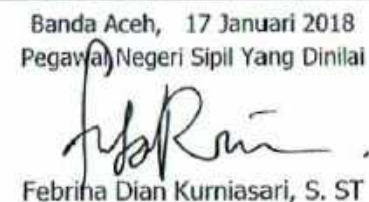 Banda Aceh, 17 Januari 2018
Pegawai Negeri Sipil Yang Dinilai
Febrina Dian Kurniasari, S. ST